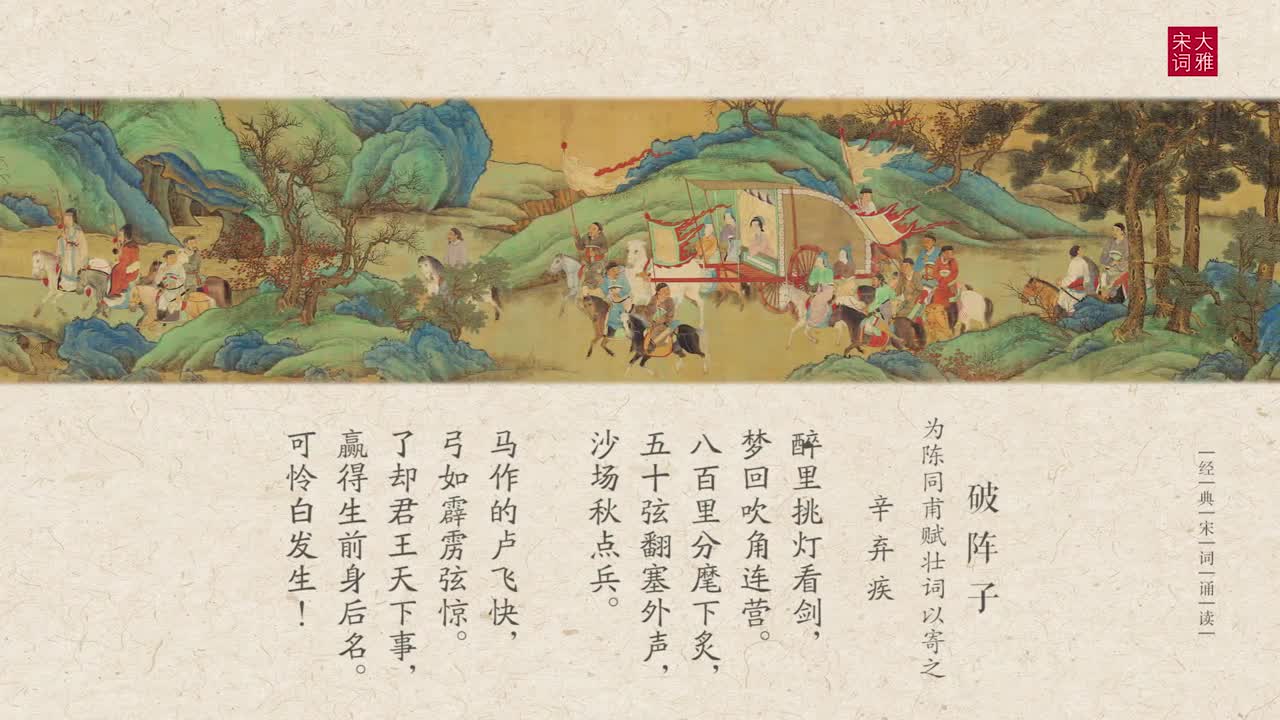 大雅
宋词
经典宋词诵读
破阵子
为陈同甫赋壮词以寄之
辛弃疾
醉里挑灯看剑，
梦回吹角连营。
八百里分麾下炙，
五十弦翻塞外声，
沙场秋点兵。
马作的卢飞快，
弓如霹雳弦惊。
了却君王天下事，
赢得生前身后名。
可怜白发生！